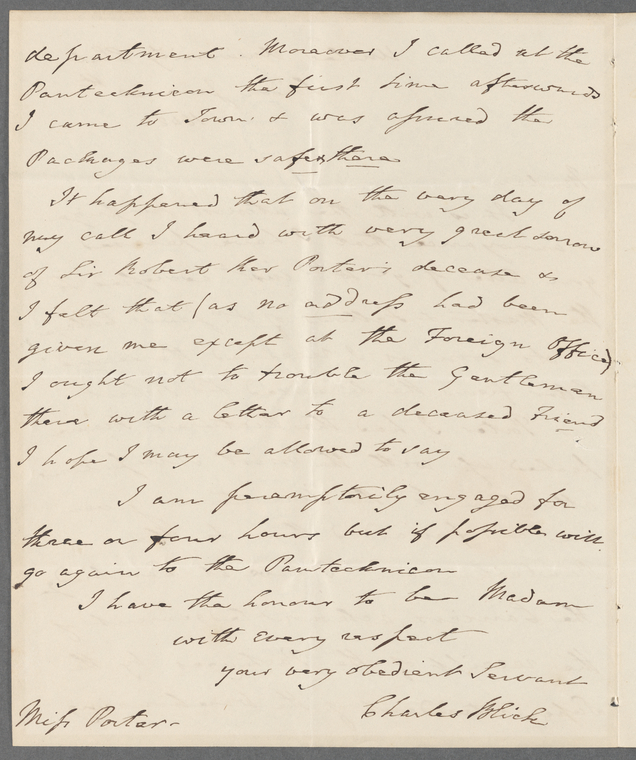 department. Moreover I called at the
Pantecknicon the first time afterwards
I came to Town & was assured the
Packages were safe there
It happened that on the very day of
my call I heard with very great sorrow
of Sir Robert Ker Porter's decease &
I felt that (as no address had been
given me except at the Foreign Office)
I ought not to trouble the Gentleman
there with a letter to a deceased Friend.
I hope I may be allowed to say
I am peremptorily engaged for
three or four hours but if possible will
go again to the Pantecknicon
I have the honour to be Madam
with every respect
your very obedient Servant
Charles Blick
Miss Porter-